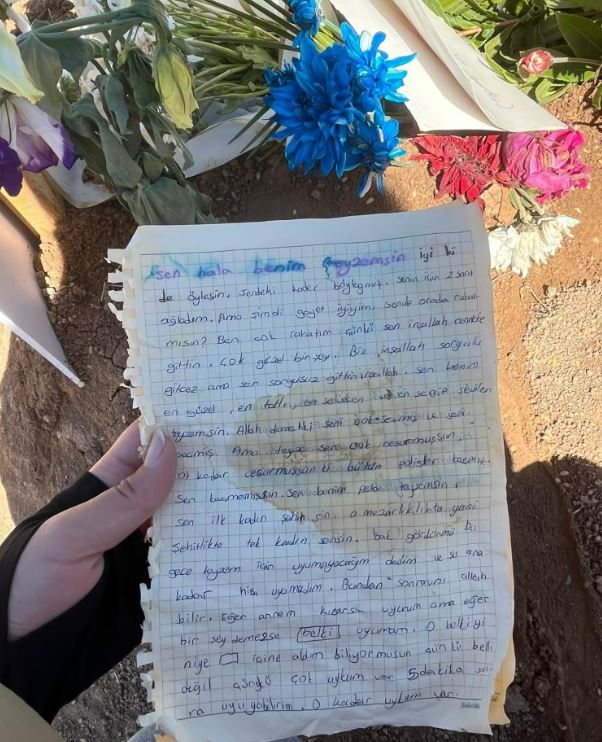 sen hala benim teyzemsin iyi ki
de öylesin. Sendeki kader böyleymiş. Senin için 2 saat
ağladım. Ama şimdi gayet iyiyim. Sende orada rahat
mısın? Ben çok rahatım çünkü sen inşallah cennete
gittin. Çok güzel bir şey. Biz inşallah sorgulu
gitcez ama sen sorgusuz gittin inşallah. Sen benim
en güzel, en tatlı, en en sevilen
teyzemsin. Allah demekki seni çok sevmiş ve seni
seçmiş. Ama teyze sen çok cesurmuşsun.
O kadar cesurmuşsun ki bütün polisler kaçmış
sen kaçmamışsın. Sen benim Aslan teyzemsin.
sen ilk kadın şehitsin. o mezarlıkta yani
Şehitlikte tek kadın sensin. bak gördünmü bu
gece teyzem için uyumayacağım dedim ve şu ana
kadar hiç uyumadım. Bundan sonrasını allah
bilir. Eğer annem kızarsa uyurum ama eğer
bir şey demezse belki uyumam. O belkiyi
niye içine aldım biliyormusun çünkü belli
değil çünkü çok uykum var 5 dakika son
ra uyuyabilirim. O kadar uykum var.